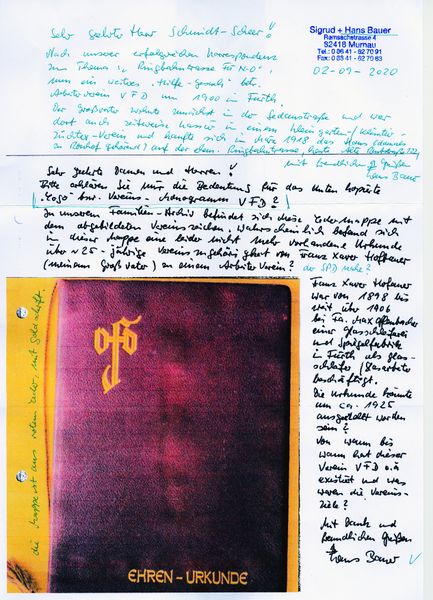 Sehr geehrter Herr Schmidt-Scheer!
Sigrud + Hans Bauer
Ramsachstrasse 4
82418 Murnau
Tel.: 0 88 41 - 62 70 91
Fax: 0 88 41 - 62 70 83
02-09-2020
Nach unserer erfolgreichen Korrespondenz
zum Thema: „Ringbahntrasse Fü N-O",
nun ein weiteres „Hilfe-gesuch" betr.
Arbeiter Verein VFD um 1900 in Fürth.
Der Großvater wohnte zunächst in der Sedanstraße und war
dort auch zeitweise Kassier in einem Kleingarten/Kleintier-
Züchter-Verein und kaufte sich im März 1918 das Haus (damals
zu Ronhof gehörend) auf der ehem. Ringbahntrasse, heute
mit freundlichen Grüßen
Hans Bauer
Sehr geehrte Damen und Herren!
Bitte erklären Sie mir die Bedeutung für das unten kopierte
"Logo" bzw. Vereins-Monogramm VFD?
In unserem Familien-Archiv befindet sich diese Ledermappe mit
dem abgebildeten Vereinszeichen. Wahrscheinlich befand sich
in dieser Mappe eine leider nicht mehr vorhandene Urkunde
über 25-jährige Vereinszugehörigkeit von Franz Xaver Hofbauer
(meinem Großvater) an einem Arbeiter Verein? der SPD nahe?
die Mappe ist aus rotem Leder, mit Goldschrift.
EHREN - URKUNDE
Franz Xaver Hofbauer
war von 1898 bis
weit über 1906
bei Fa. Max Offenbacher
einer Glasschleiferei
und Spiegelfabrik
in Fürth als Glas-
schleifer/Glasarbeiter
beschäftigt.
Die Urkunde könnte
um ca. 1925
ausgestellt worden
sein?
Von wann bis
wann hat dieser
Verein VFD o.ä
existiert und was
waren die Vereins-
ziele?
Mit Dank und
freundlichen Grüßen
Hans Bauer